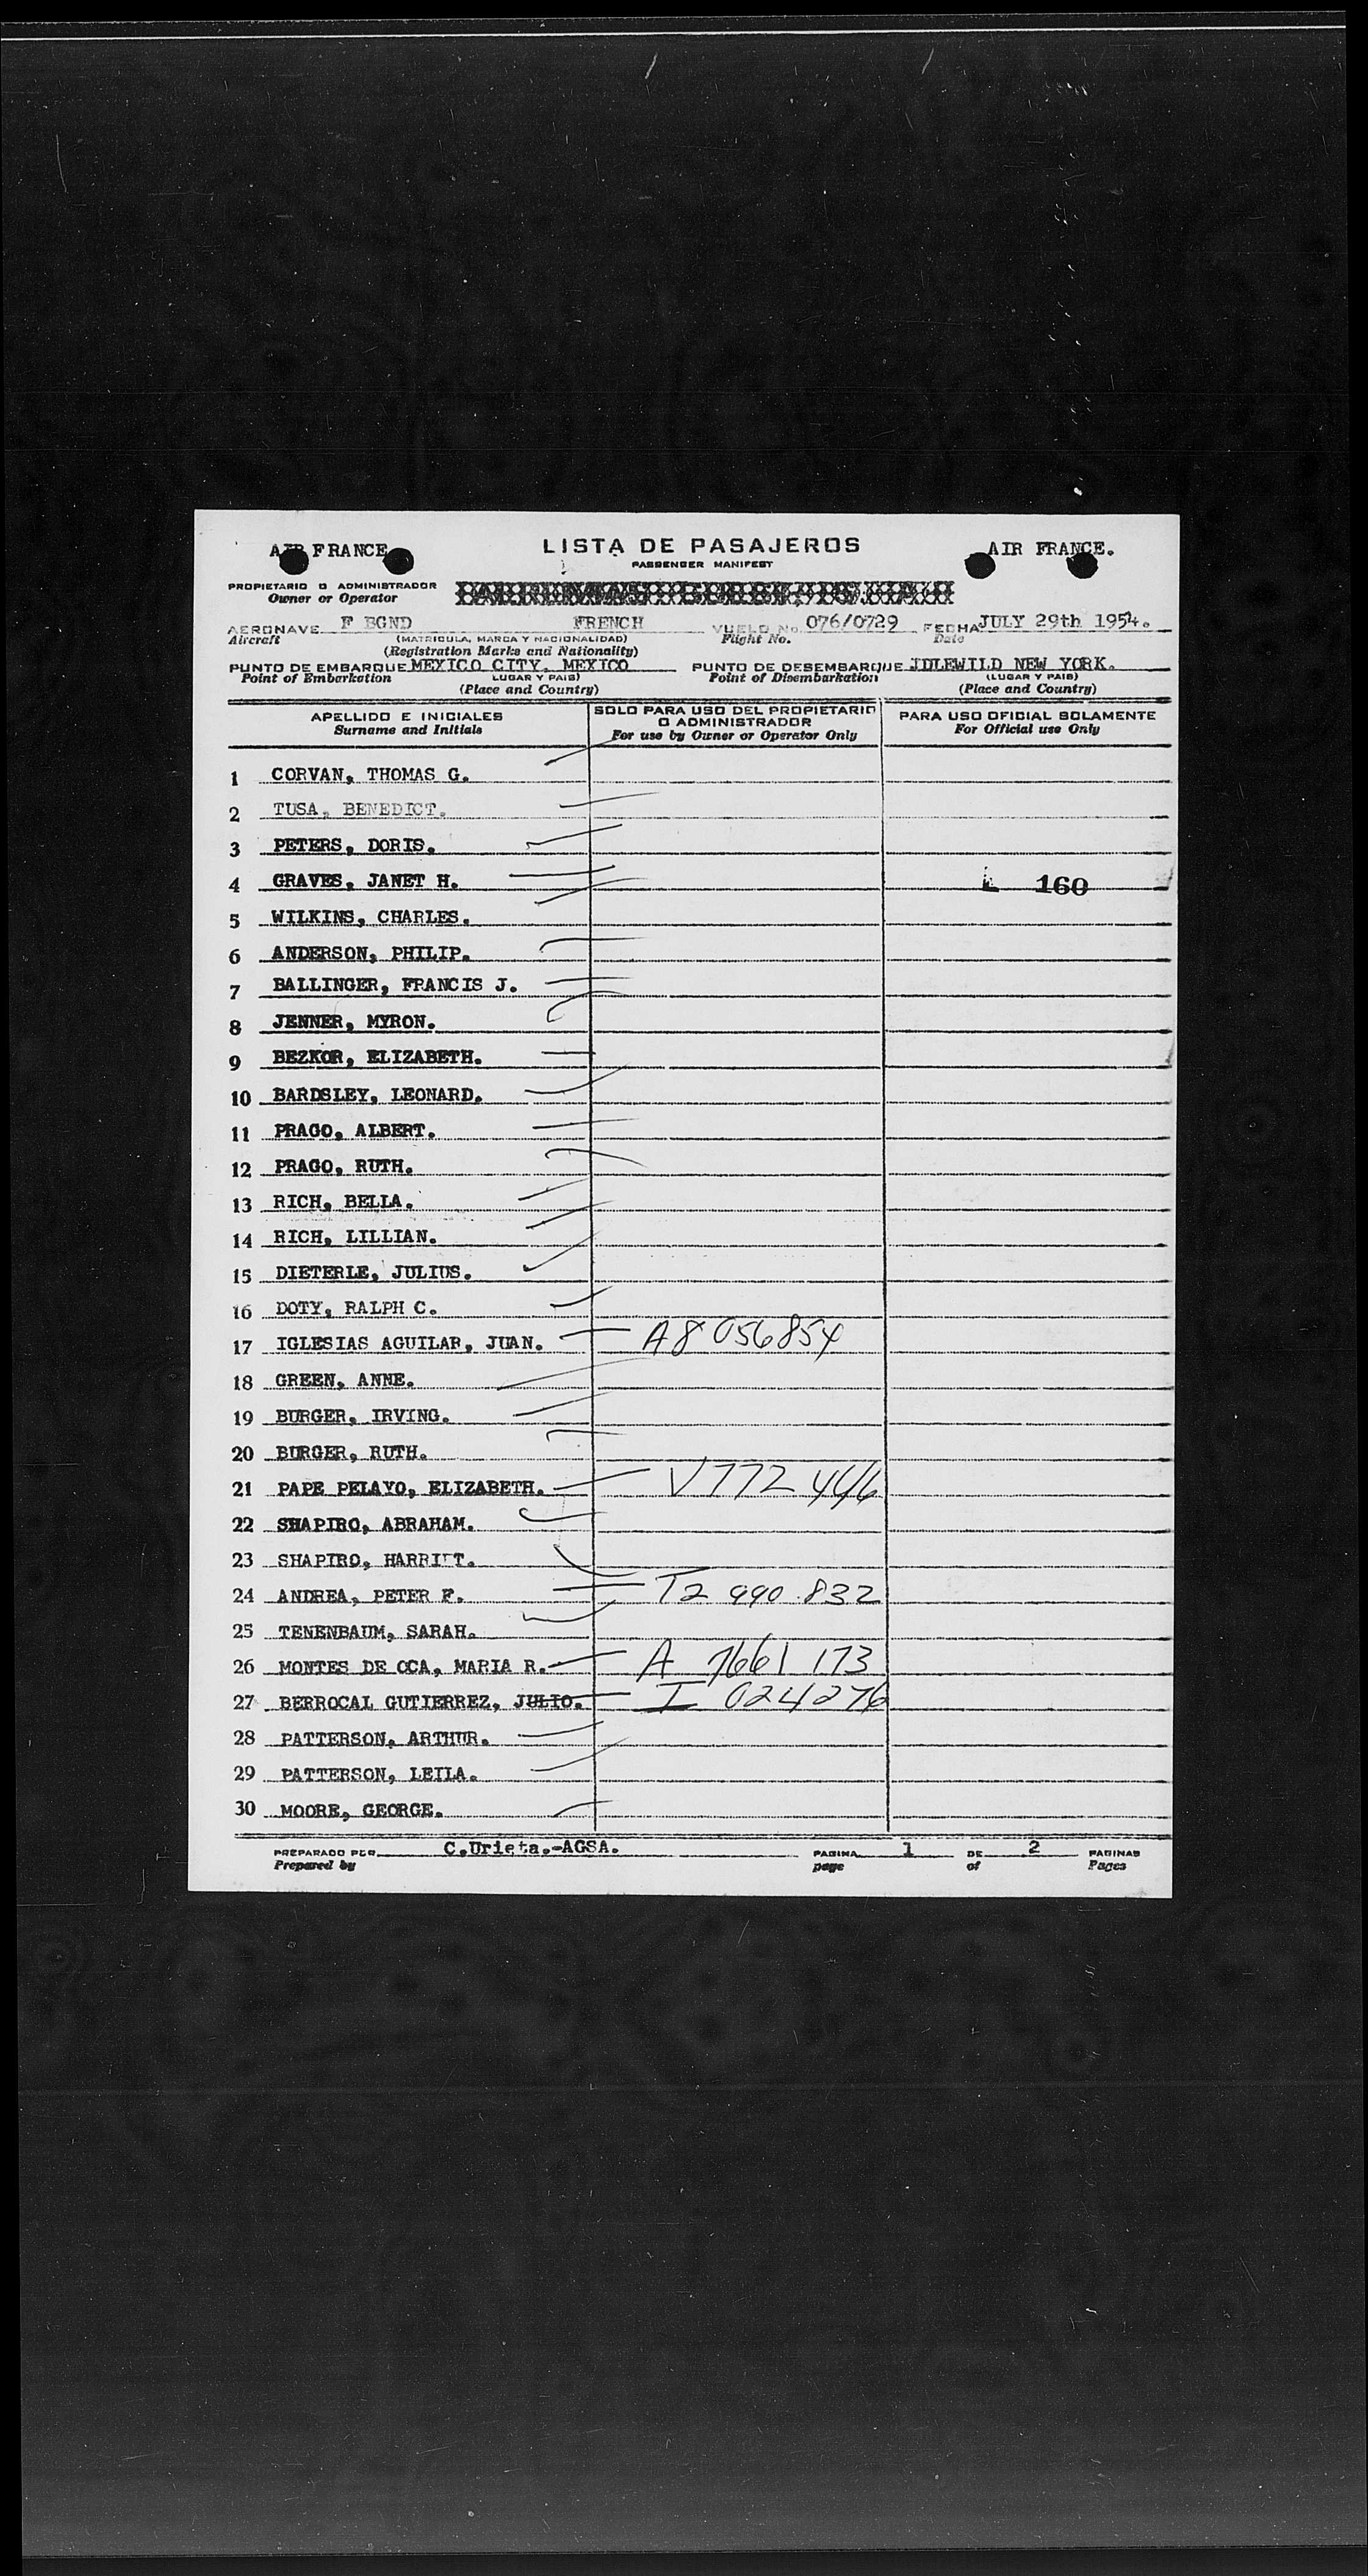 AIR FRANCE
LISTA DE PASAJEROS
AIR FRANCE.
PASSENGER MANIFEST
PROPIETARIO O ADMINISTRADOR
Owner or Operator
AERONAVE F BGND FRENCH VUELO No. 076/0729 FECHA JULY 29th 1954.
Aircraft (MATRICULA, MARCA Y NACIONALIDAD) Flight No. Date
(Registration Marks and Nationality)
PUNTO DE EMBARQUE MEXICO CITY, MEXICO PUNTO DE DESEMBARQUE IDLEWILD NEW YORK.
Point of Embarkation LUGAR Y PAIS) Point of Disembarkation (LUGAR Y PAIS)
(Place and Country) (Place and Country)
APELLIDO E INICIALES
Surname and Initials
SOLO PARA USO DEL PROPIETARIO
O ADMINISTRADOR
For use by Owner or Operator Only
PARA USO OFICIAL SOLAMENTE
For Official use Only
1 CORVAN, THOMAS G.
2 TUSA, BENEDICT.
3 PETERS, DORIS.
4 GRAVES, JANET H. 160
5 WILKINS, CHARLES.
6 ANDERSON, PHILIP.
7 BALLINGER, FRANCIS J.
8 JENNER, MYRON.
9 BEZKOR, ELIZABETH.
10 BARDSLEY, LEONARD.
11 PRAGO, ALBERT.
12 PRAGO, RUTH.
13 RICH, BELLA.
14 RICH, LILLIAN.
15 DIETERLE, JULIUS.
16 DOTY, RALPH C.
17 IGLESIAS AGUILAR, JUAN. A8 056854
18 GREEN, ANNE.
19 BURGER, IRVING.
20 BURGER, RUTH.
21 PAPE PELAYO, ELIZABETH. V772 446
22 SHAPIRO, ABRAHAM.
23 SHAPIRO, HARRIET.
24 ANDREA, PETER F. T2 990 832
25 TENENBAUM, SARAH.
26 MONTES DE OCA, MARIA R. A 7661 173
27 BERROCAL GUTIERREZ, JULIO. I 024276
28 PATTERSON, ARTHUR.
29 PATTERSON, LEILA.
30 MOORE, GEORGE.
PREPARADO POR C.Urieta.-AGSA. PAGINA 1 DE 2 PAGINAS
Prepared by page of Pages